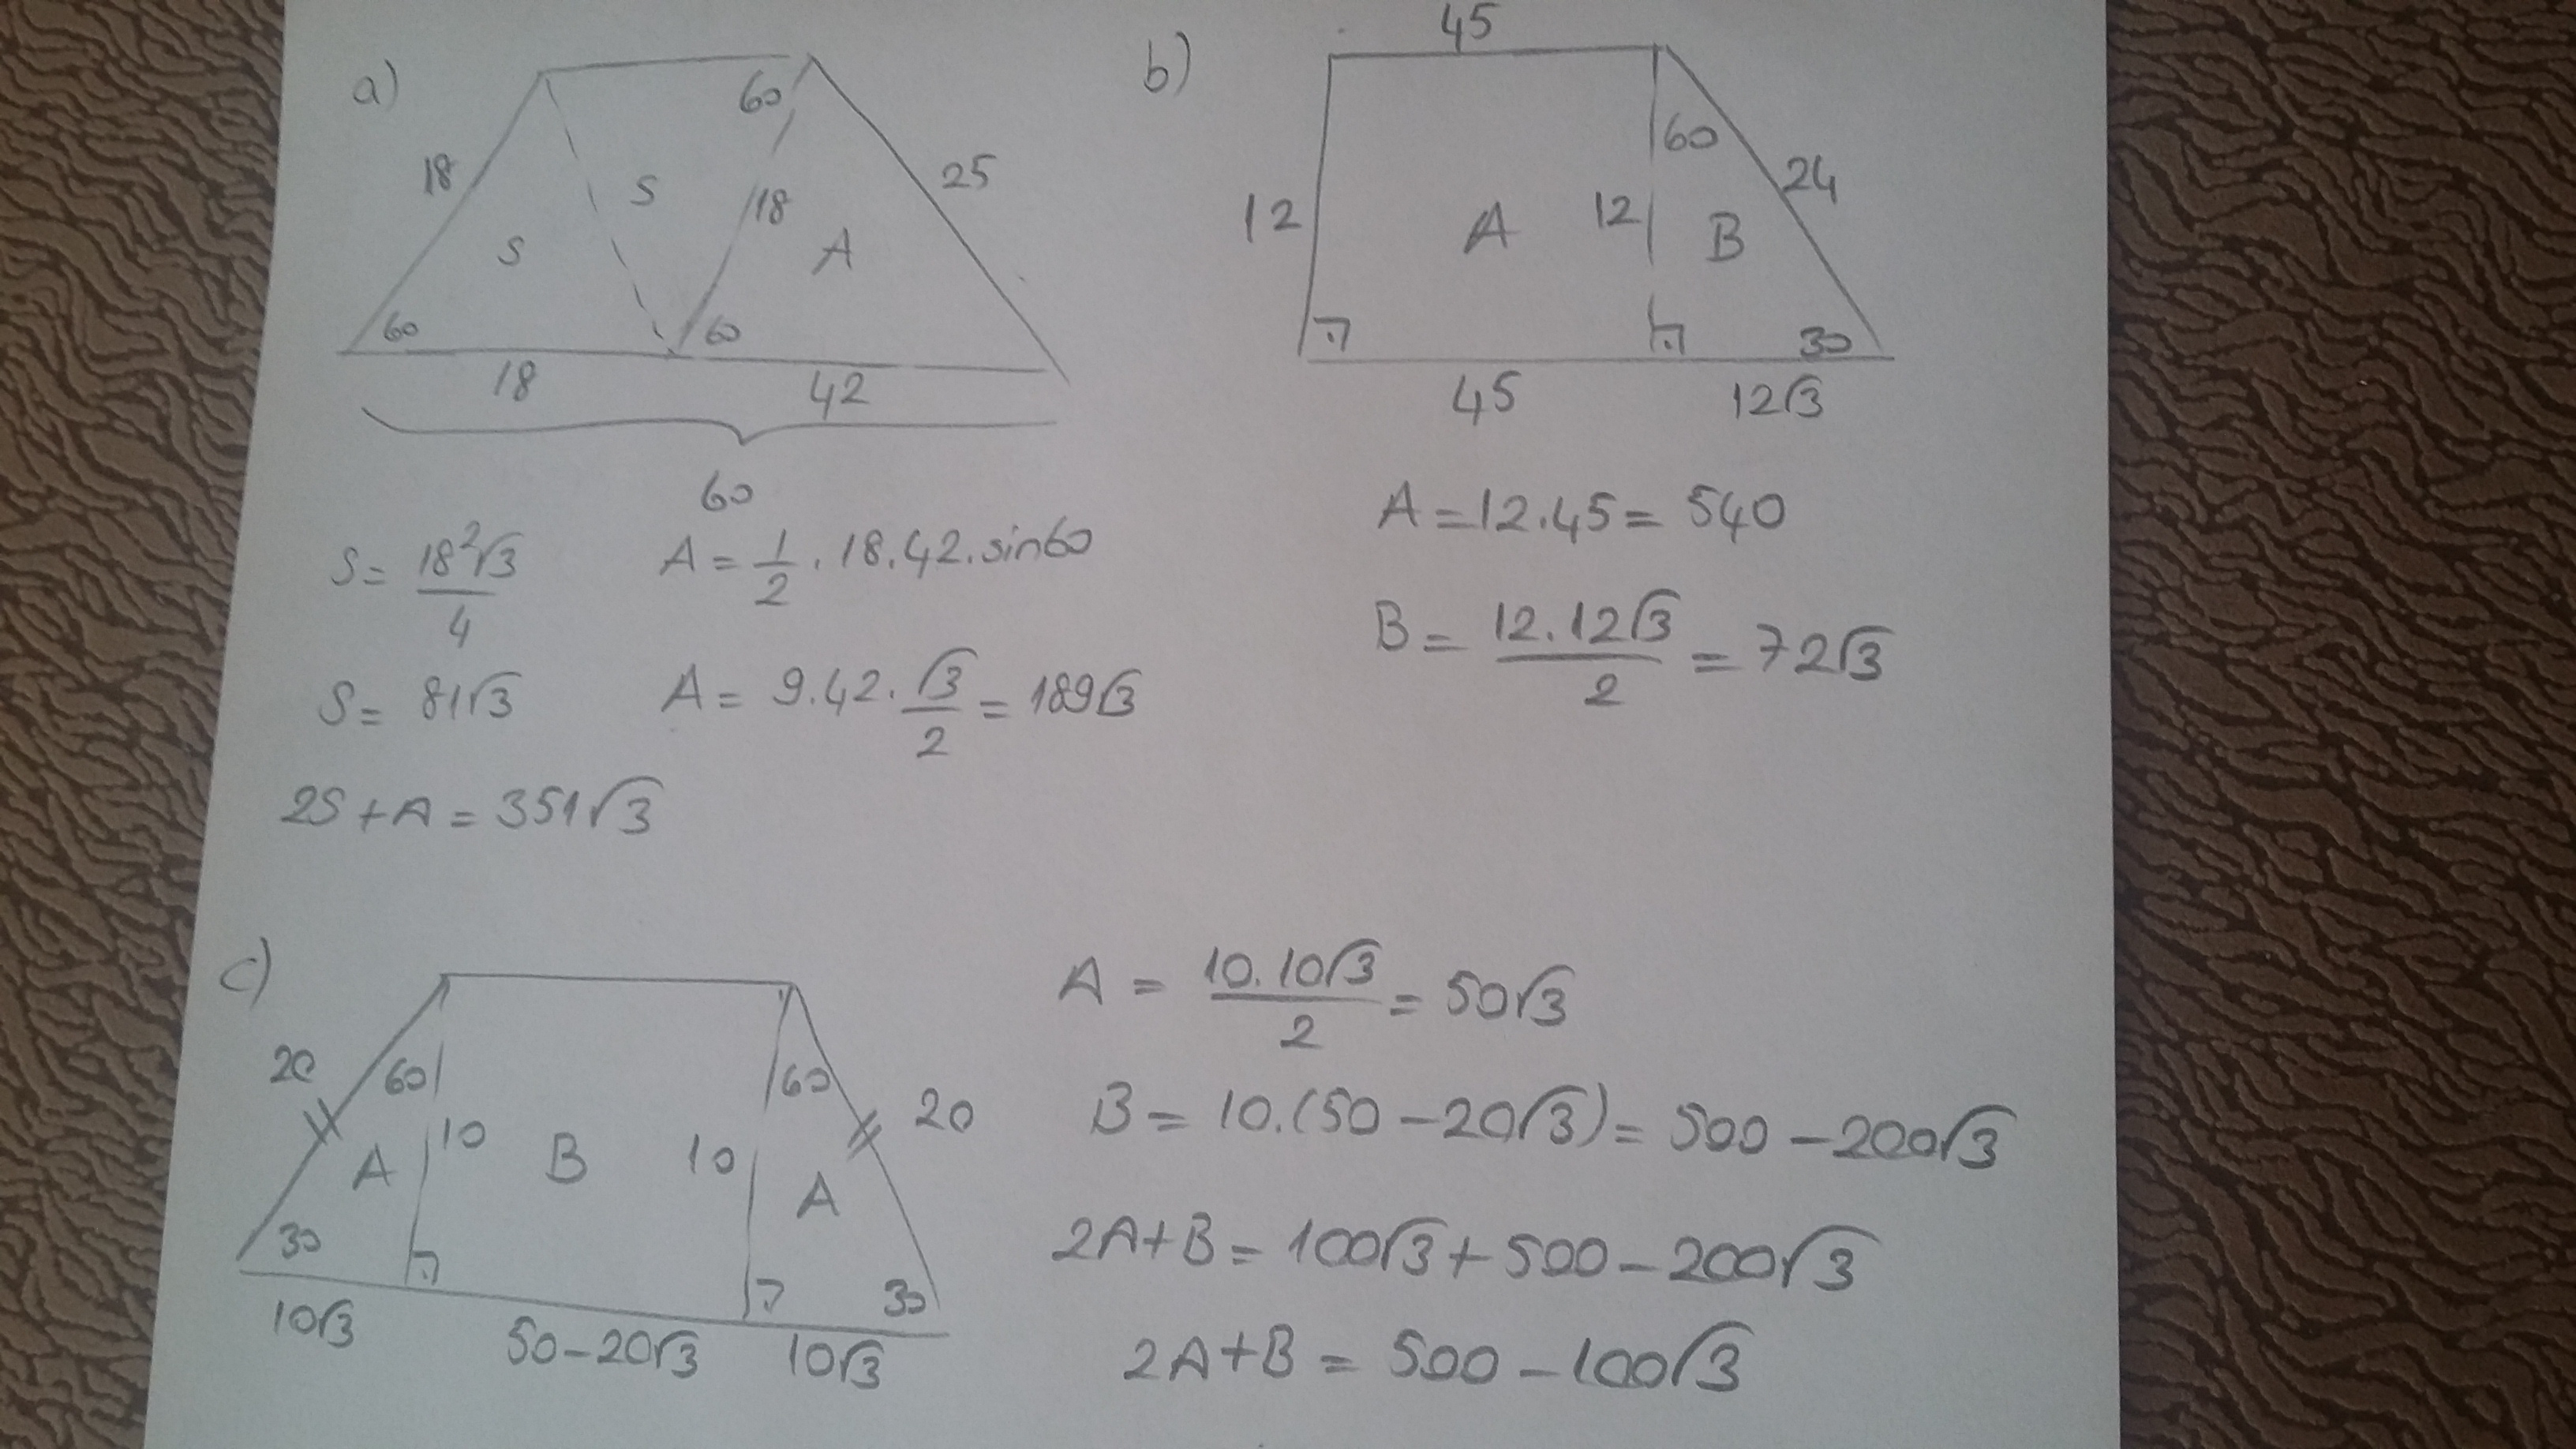 a)
60
18
S
18
25
S
A
60
60
18
42
60
S = 18²√3 / 4
A = 1/2 . 18.42.sin60
S = 81√3
A = 9.42. √3/2 = 189√3
2S + A = 351√3
b)
45
60
24
12
A
12
B
30
45
12√3
A = 12.45 = 540
B = 12.12√3 / 2 = 72√3
c)
20
60
60
20
A
10
B
10
A
30
30
10√3
50-20√3
10√3
A = 10.10√3 / 2 = 50√3
B = 10.(50-20√3) = 500-200√3
2A+B = 100√3+500-200√3
2A+B = 500-100√3